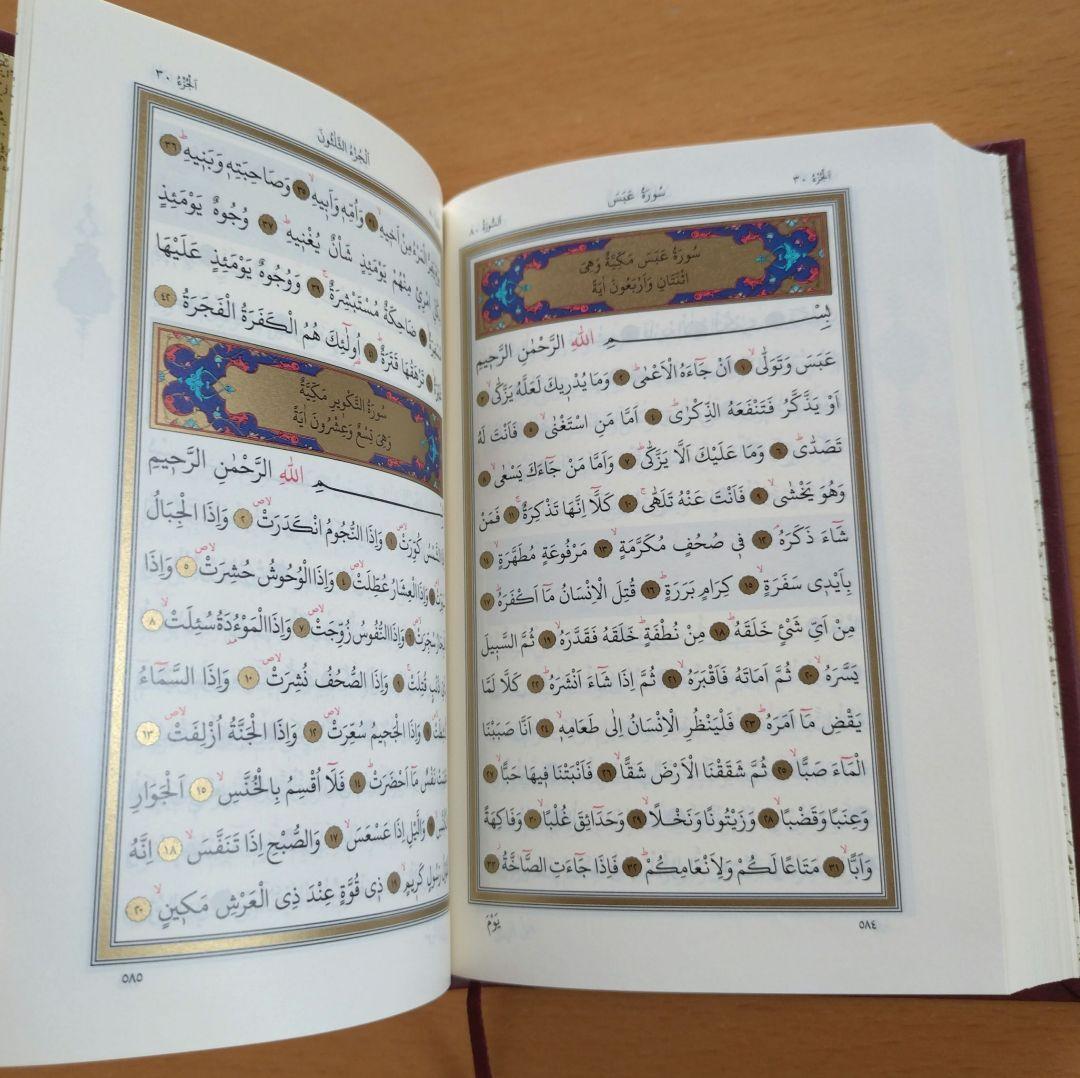 اَلْجُزْءُ ٣٠
سُورَةُ عَبَسَ
اَلسُّورَةُ ٨٠
سُورَةُ عَبَسَ مَكِّيَّةٌ وَهِىَ
اثْنَتَانِ وَاَرْبَعُونَ اٰيَةً
بِسْمِ اللّٰهِ الرَّحْمٰنِ الرَّحٖيمِ
عَبَسَ وَتَوَلّٰىۙ ١ اَنْ جَٓاءَهُ الْاَعْمٰىؕ ٢ وَمَا يُدْرٖيكَ لَعَلَّهُ يَزَّكّٰىۙ ٣
اَوْ يَذَّكَّرُ فَتَنْفَعَهُ الذِّكْرٰىؕ ٤ اَمَّا مَنِ اسْتَغْنٰىۙ ٥ فَاَنْتَ لَهُ
تَصَدّٰىؕ ٦ وَمَا عَلَيْكَ اَلَّا يَزَّكّٰىؕ ٧ وَاَمَّا مَنْ جَٓاءَكَ يَسْعٰىۙ ٨
وَهُوَ يَخْشٰىۙ ٩ فَاَنْتَ عَنْهُ تَلَهّٰىۚ ١٠ كَلَّٓا اِنَّهَا تَذْكِرَةٌۚ ١١ فَمَنْ
شَٓاءَ ذَكَرَهُۢ ١٢ فٖى صُحُفٍ مُكَرَّمَةٍۙ ١٣ مَرْفُوعَةٍ مُطَهَّرَةٍۙ ١٤
بِاَيْدٖى سَفَرَةٍۙ ١٥ كِرَامٍ بَرَرَةٍؕ ١٦ قُتِلَ الْاِنْسَانُ مَٓا اَكْفَرَهُؕ ١٧
مِنْ اَىِّ شَىْءٍ خَلَقَهُؕ ١٨ مِنْ نُطْفَةٍؕ خَلَقَهُ فَقَدَّرَهُۙ ١٩ ثُمَّ السَّبٖيلَ
يَسَّرَهُۙ ٢٠ ثُمَّ اَمَاتَهُ فَاَقْبَرَهُۙ ٢١ ثُمَّ اِذَا شَٓاءَ اَنْشَرَهُؕ ٢٢ كَلَّا لَمَّا
يَقْضِ مَٓا اَمَرَهُؕ ٢٣ فَلْيَنْظُرِ الْاِنْسَانُ اِلٰى طَعَامِهٖۙ ٢٤ اَنَّا صَبَبْنَا
الْمَٓاءَ صَبًّاۙ ٢٥ ثُمَّ شَقَقْنَا الْاَرْضَ شَقًّاۙ ٢٦ فَاَنْبَتْنَا فٖيهَا حَبًّاۙ ٢٧
وَعِنَبًا وَقَضْبًاۙ ٢٨ وَزَيْتُونًا وَنَخْلًاۙ ٢٩ وَحَدَٓائِقَ غُلْبًاۙ ٣٠ وَفَاكِهَةً
وَاَبًّاۙ ٣١ مَتَاعًا لَكُمْ وَلِاَنْعَامِكُمْؕ ٣٢ فَاِذَا جَٓاءَتِ الصَّٓاخَّةُؗ ٣٣
يَوْمَ
٥٨٤
اَلْجُزْءُ ٣٠
اَلْجُزْءُ الثَّلٰثُونَ
الْمَرْءُ مِنْ اَخٖيهِۙ ٣٤ وَاُمِّهٖ وَاَبٖيهِۙ ٣٥ وَصَاحِبَتِهٖ وَبَنٖيهِؕ ٣٦
امْرِئٍ مِنْهُمْ يَوْمَئِذٍ شَأْنٌ يُغْنٖيهِؕ ٣٧ وُجُوهٌ يَوْمَئِذٍ
ضَاحِكَةٌ مُسْتَبْشِرَةٌۚ ٣٩ وَوُجُوهٌ يَوْمَئِذٍ عَلَيْهَا
تَرْهَقُهَا قَتَرَةٌؕ ٤١ اُولٰٓئِكَ هُمُ الْكَفَرَةُ الْفَجَرَةُ ٤٢
سُورَةُ التَّكْوٖيرِ مَكِّيَّةٌ
وَهِىَ تِسْعٌ وَعِشْرُونَ اٰيَةً
مِ اللّٰهِ الرَّحْمٰنِ الرَّحٖيمِ
كُوِّرَتْ ١ وَاِذَا النُّجُومُ انْكَدَرَتْ ٢ وَاِذَا الْجِبَالُ
وَاِذَا الْعِشَارُ عُطِّلَتْ ٤ وَاِذَا الْوُحُوشُ حُشِرَتْ ٥ وَاِذَا
سُجِّرَتْ وَاِذَا النُّفُوسُ زُوِّجَتْ ٧ وَاِذَا الْمَوْءُ۫دَةُ سُئِلَتْۙ ٨
قُتِلَتْۚ ٩ وَاِذَا الصُّحُفُ نُشِرَتْ ١٠ وَاِذَا السَّمَٓاءُ
وَاِذَا الْجَحٖيمُ سُعِّرَتْ ١٢ وَاِذَا الْجَنَّةُ اُزْلِفَتْ ١٣
نَفْسٌ مَٓا اَحْضَرَتْؕ ١٤ فَلَٓا اُقْسِمُ بِالْخُنَّسِۙ ١٥ اَلْجَوَارِ
وَالَّيْلِ اِذَا عَسْعَسَۙ ١٧ وَالصُّبْحِ اِذَا تَنَفَّسَۙ ١٨ اِنَّهُ
رَسُولٍ كَرٖيمٍۙ ١٩ ذٖى قُوَّةٍ عِنْدَ ذِى الْعَرْشِ مَكٖينٍۙ ٢٠
٥٨٥